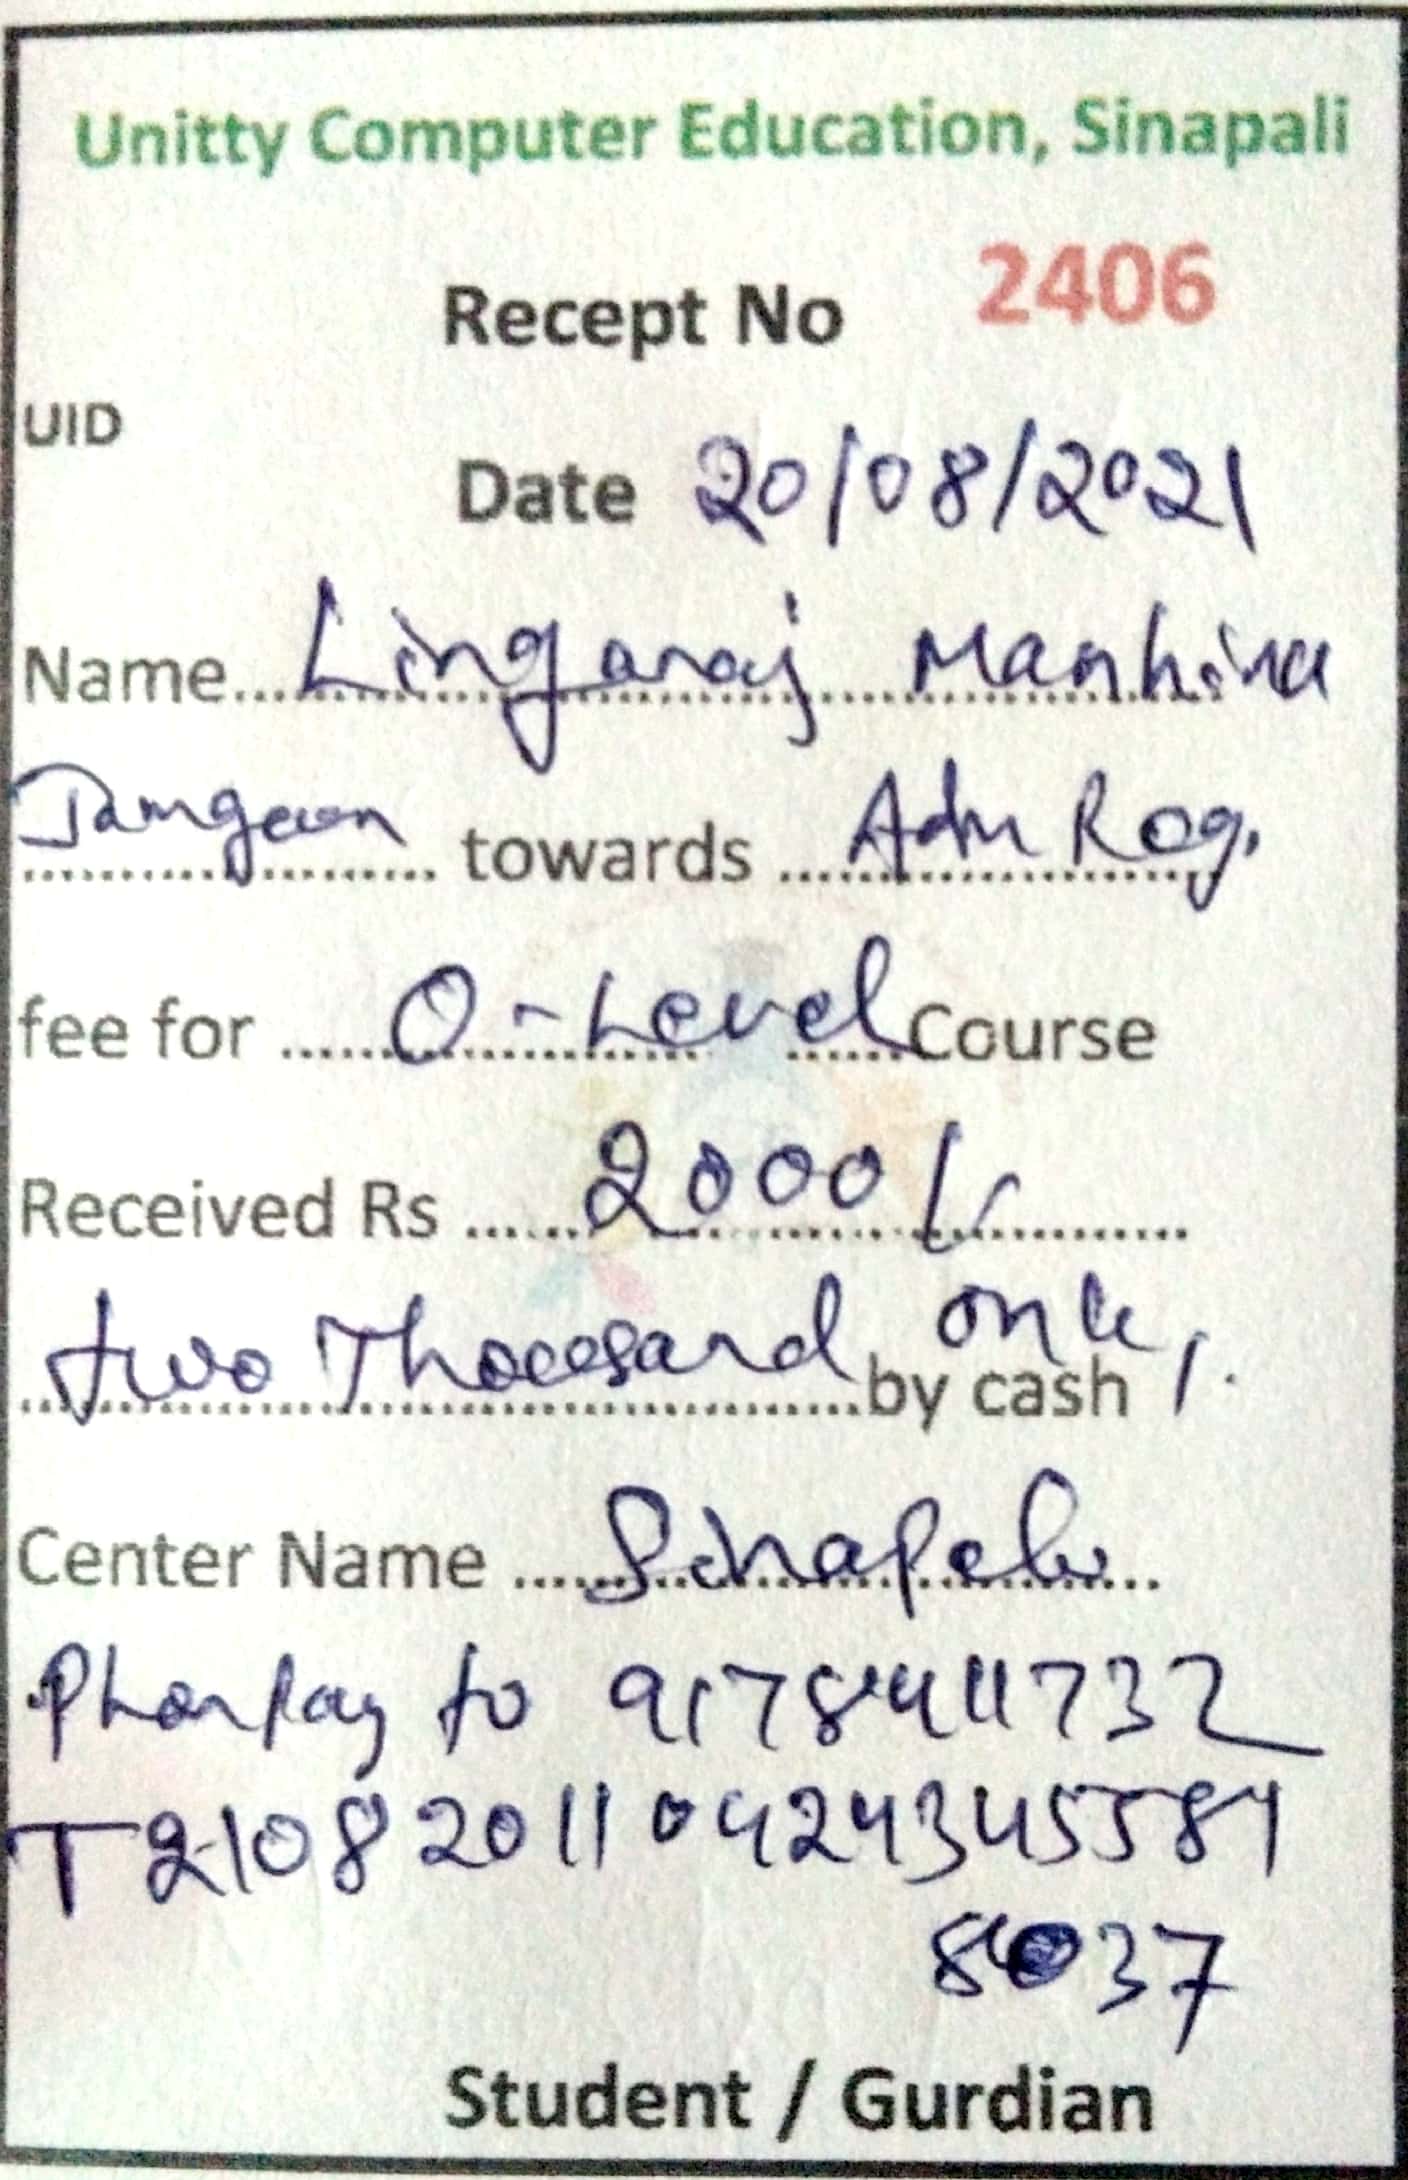 Unitty Computer Education, Sinapali
Recept No 2406
UID
Date 20/08/2021
Name...Lingaraj Manhira
Jamgaon towards ...Adm Reg.
fee for ...O-Level Course
Received Rs ...2000/-
two Thousand only by cash /.
Center Name ...Sinapali
Phonpay to 9178411732
T210820110424345581
8 37
Student / Gurdian